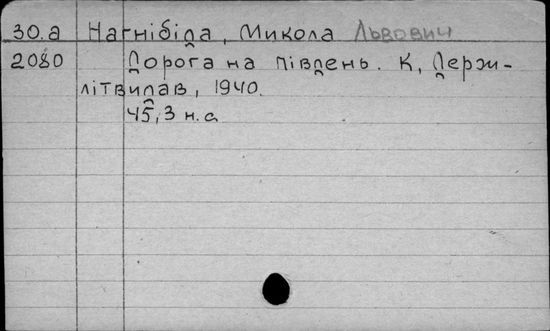 30.а Нагнібіда, Микола Львович
2080 Дорога на південь. К, Держ-
літвидав, 1940.
45, 3 н.а